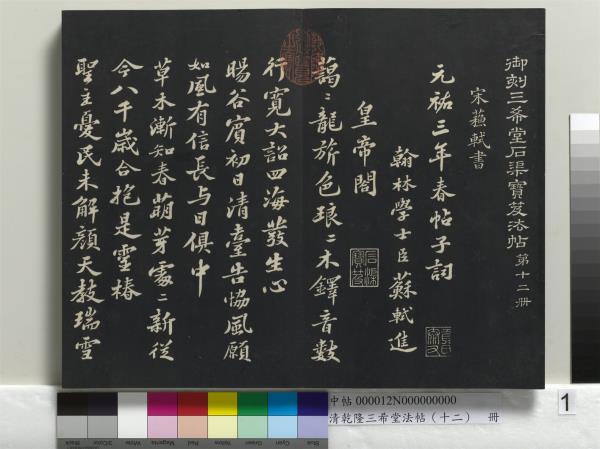 御刻三希堂石渠寶笈法帖第十二冊
宋蘇軾書
元祐三年春帖子詞
翰林學士臣蘇軾進
皇帝閣
藹〻龍旂色琅〻木鐸音數
行寬大詔四海發生心
暘谷賓初日清臺告協風願
如風有信長与日俱中
草木漸知春萌芽處〻新從
今八千歲合抱是靈椿
聖主憂民未解顏天教瑞雪
中帖 000012N000000000
清乾隆三希堂法帖（十二） 冊
1
Black
3/Color
White
Magenta
Red
Yellow
Green
Cyan
Blue